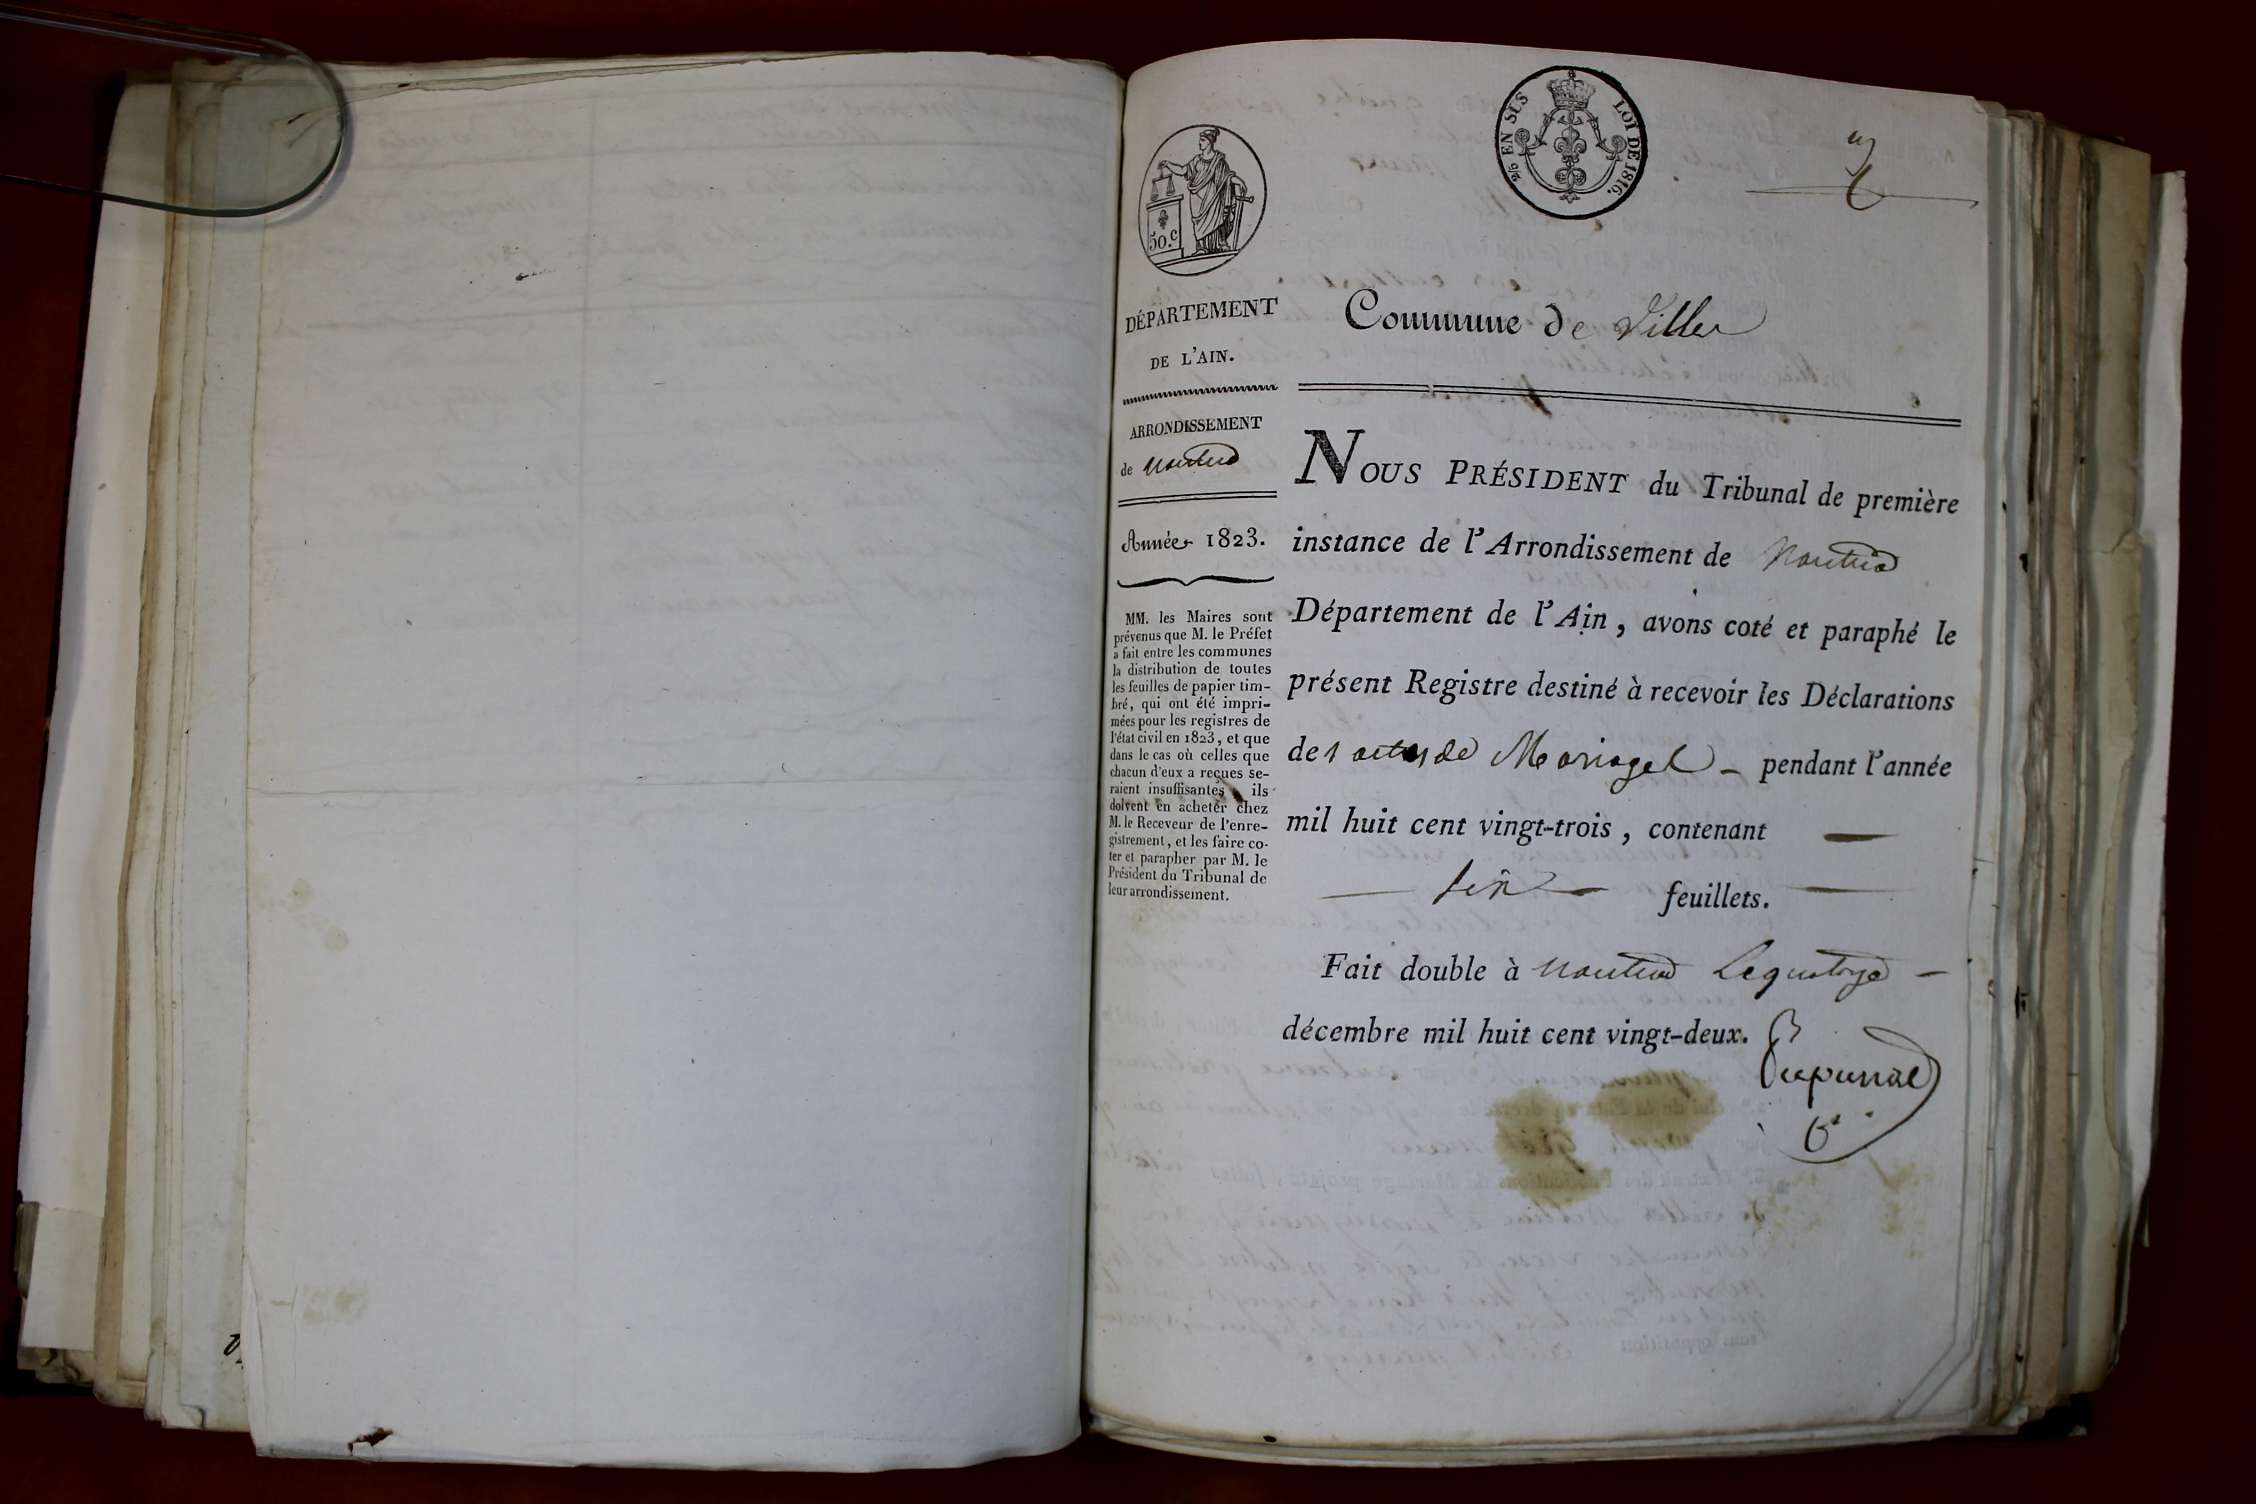 2/5 EN SUS
LOI DE 1816.
50.c
DÉPARTEMENT
DE L'AIN.
ARRONDISSEMENT
de Nantua
Année 1823.
MM. les Maires sont
prévenus que M. le Préfet
a fait entre les communes
la distribution de toutes
les feuilles de papier tim-
bré, qui ont été impri-
mées pour les registres de
l'état civil en 1823, et que
dans le cas où celles que
chacun d'eux a reçues se-
raient insuffisantes ils
doivent en acheter chez
M. le Receveur de l'enre-
gistrement, et les faire co-
ter et parapher par M. le
Président du Tribunal de
leur arrondissement.
Commune de Villes
NOUS PRÉSIDENT du Tribunal de première
instance de l'Arrondissement de Nantua
Département de l'Ain, avons coté et paraphé le
présent Registre destiné à recevoir les Déclarations
des actes de Mariages - pendant l'année
mil huit cent vingt-trois, contenant —
— six — feuillets. —
Fait double à Nantua Le quatorze —
décembre mil huit cent vingt-deux.